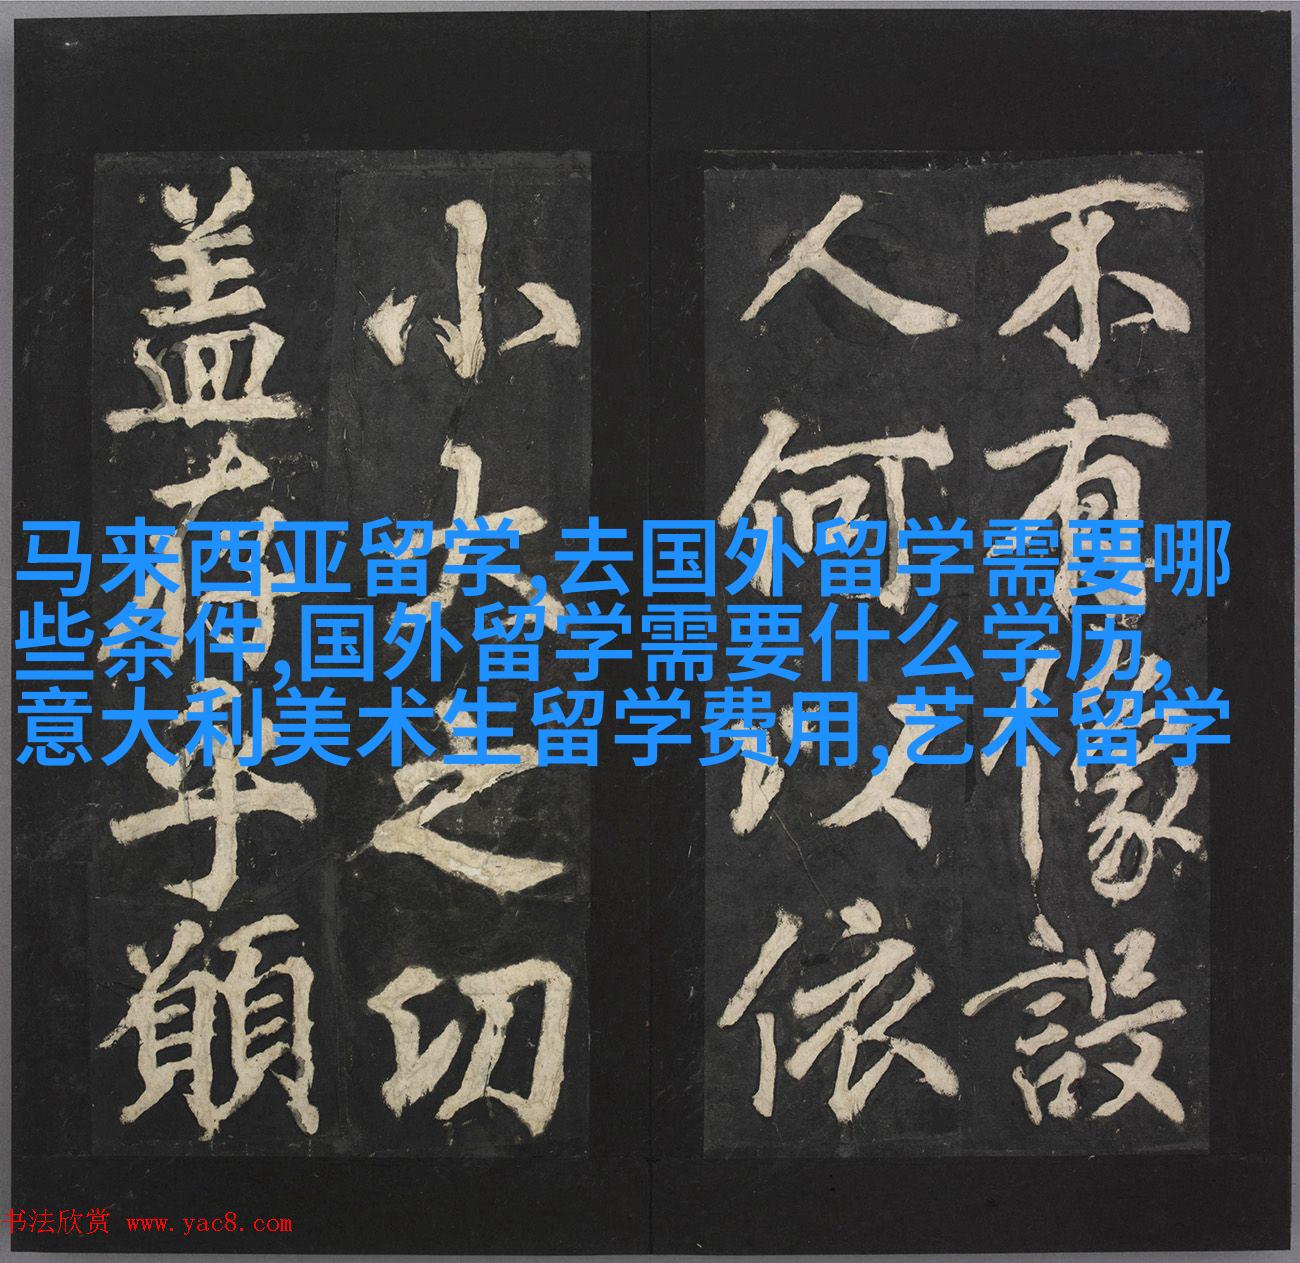 不有像設
人何以依
小大之切
盖有乎願
马来西亚留学,去国外留学需要哪
些条件,国外留学需要什么学历,
意大利美术生留学费用,艺术留学
书法欣赏 www.yac8.com